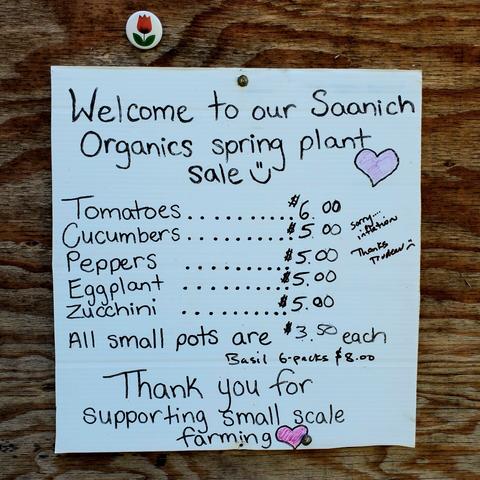 Welcome to our Saanich
Organics spring plant
sale
Tomatoes..........$6.00
Cucumbers..........$5.00
Peppers ..........$5.00
Eggplant ..........$5.00
Zucchini ..........$5.00
sorry....
inflation
Thanks
Trudeau
All small pots are $3.50 each
Basil 6-packs $8.00
Thank you for
supporting small scale
farming